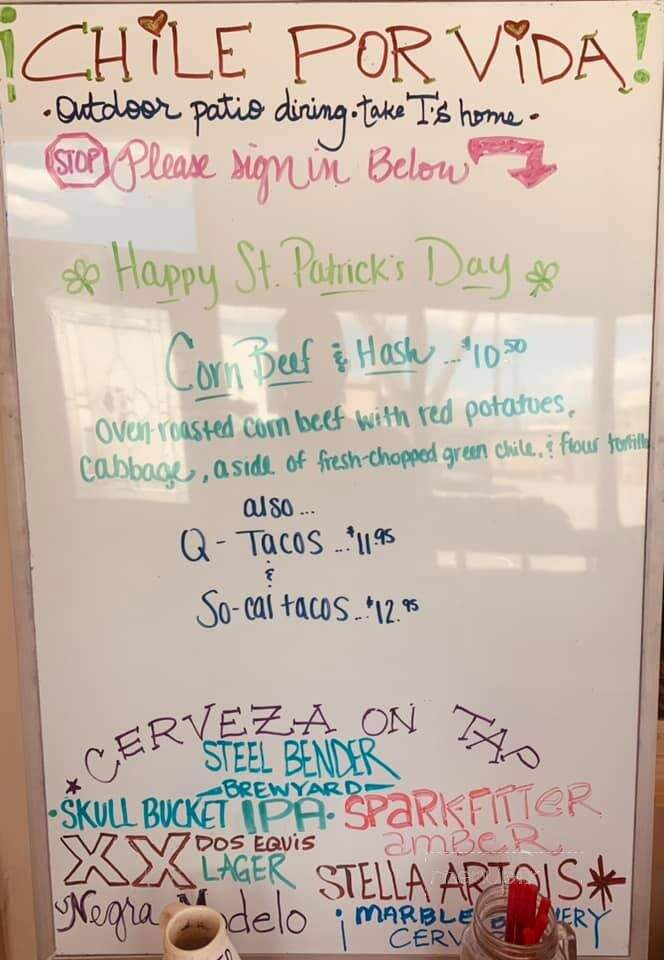 ¡CHILE POR VIDA!
·Outdoor patio dining·take T's home·
STOP Please sign in Below
Happy St. Patrick's Day
Corn Beef & Hash ...$10.50
oven-roasted corn beef with red potatoes,
cabbage, a side of fresh-chopped green chile, & flour tortilla
also...
Q-Tacos ...$11.95
&
So-cal tacos...$12.95
CERVEZA ON TAP
STEEL BENDER
-BREWYARD-
·SKULL BUCKET IPA· SPARKFITTER
amber
XX DOS EQUIS
LAGER
STELLA ARTOIS*
Negra Modelo
¡MARBLE